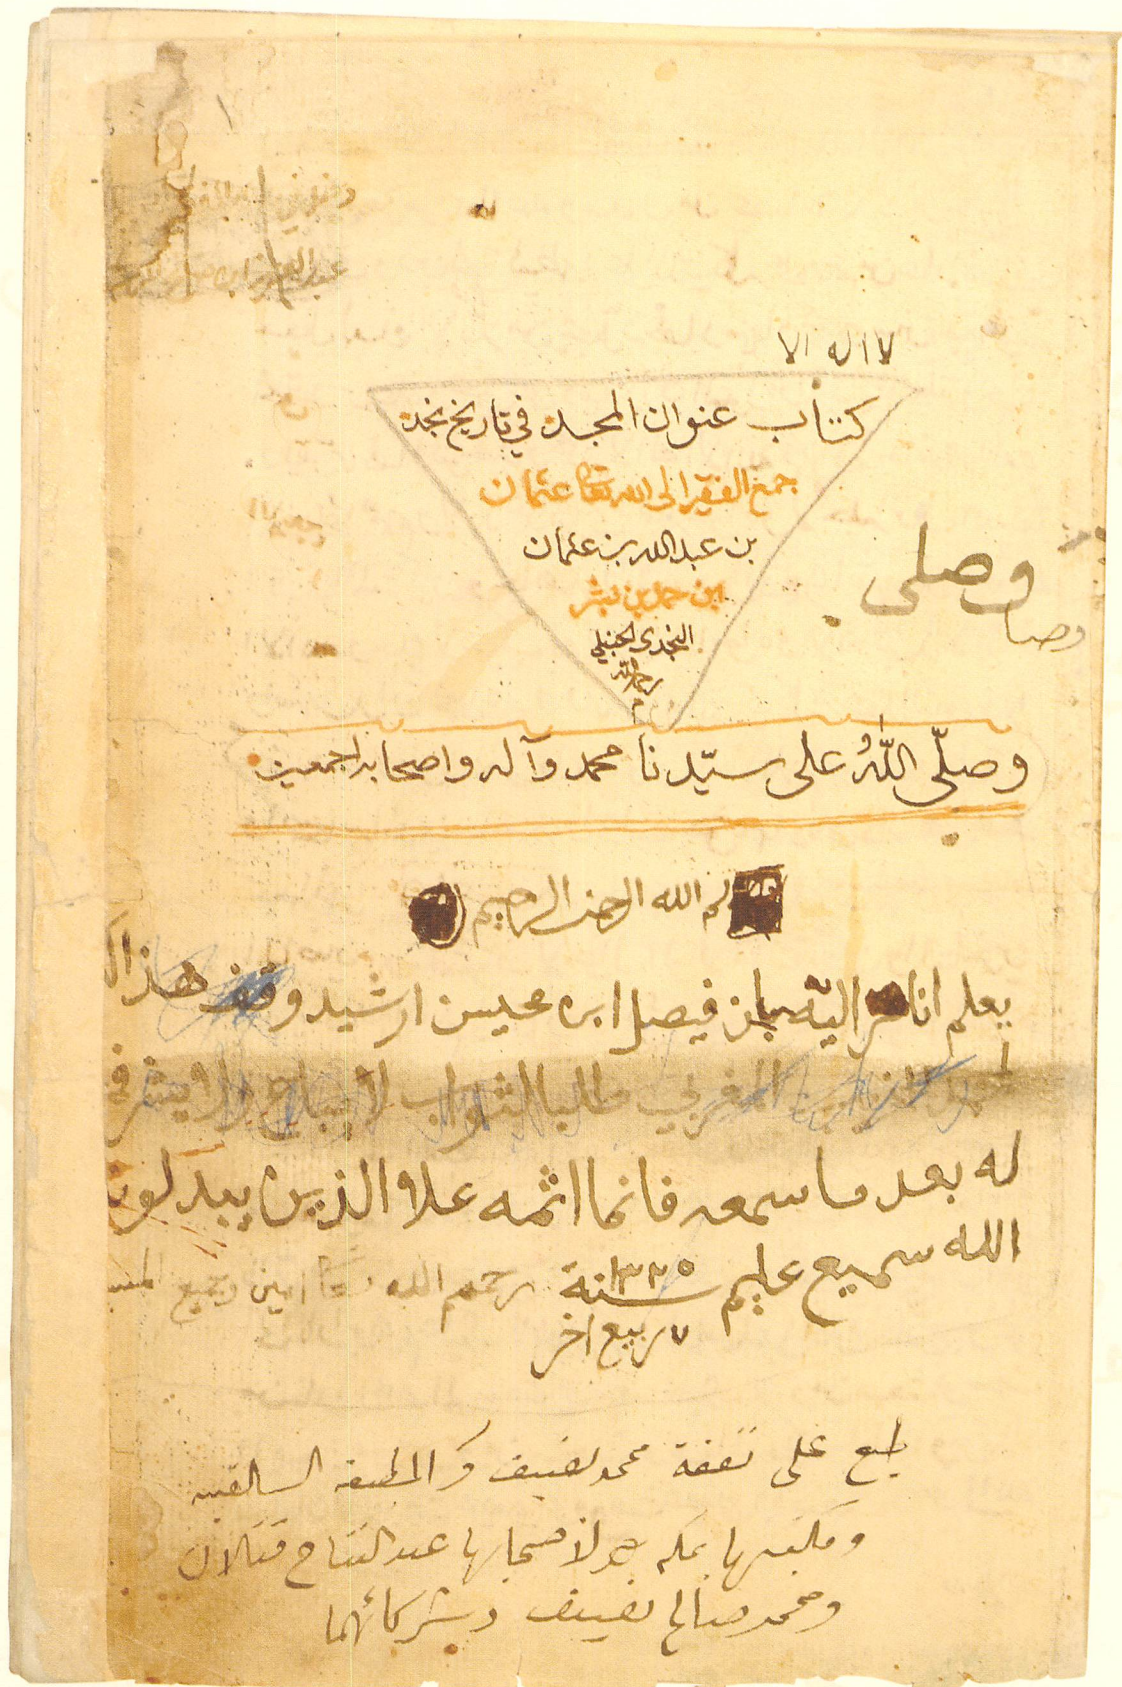 ١
لا اله الا
كتاب عنوان المجد في تاريخ نجد
جمع الفقير الى الله تعالى عثمان
بن عبد الله بن عثمان
ابن حمد بن بشر
النجدي الحنبلي
رحمه الله
وصلى
وصا
وصلّى اللهُ على سيّدنا محمد وآله واصحابه اجمعين
بسم الله الرحمن الرحيم
يعلم انا اليه بان فيصل ابره محيسن ارشيد وقف هذا
المغربي طلبا الثواب لا يباح ولا
له بعد ما سمعه فانما اثمه علا الذين يبدلون
الله سميع عليم سنة ١٣٣٥ رحمهم الله تعا امين وجميع
٧ ربيع اخر
طبع على نفقة محمد نصيف في المطبعه السلفيه
ومكتبتها بمكه لاصحابها عبد الفتاح قتلان
ومحمد صالح نصيف وشركائهما